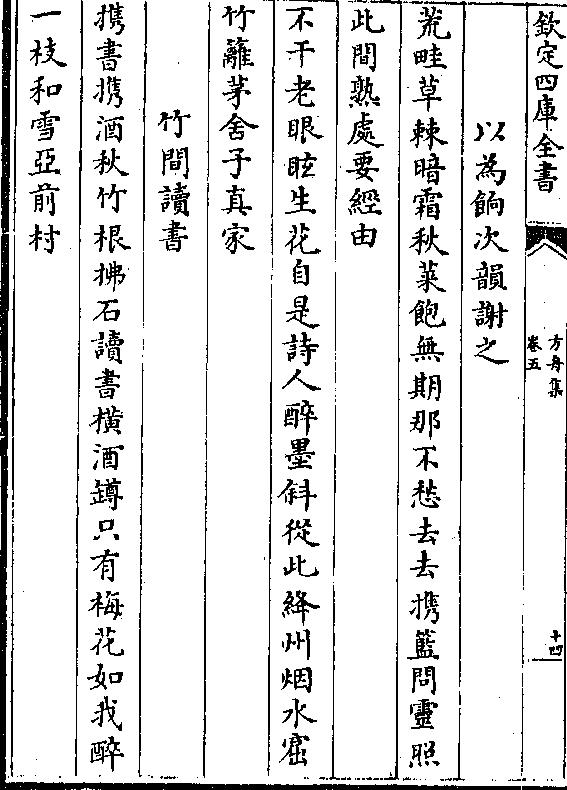 欽定四庫全書
方舟集
卷五
十四
以為餉次韻謝之
荒畦草棘暗霜秋菜飽無期那不愁去去㩗籃問靈照
此間熟處要經由
不干老眼眩生花自是詩人醉墨斜從此絳州烟水窟
竹籬茅舍子真家
竹間讀書
㩗書㩗酒秋竹根拂石讀書横酒罇只有梅花如我醉
一枝和雪亞前村